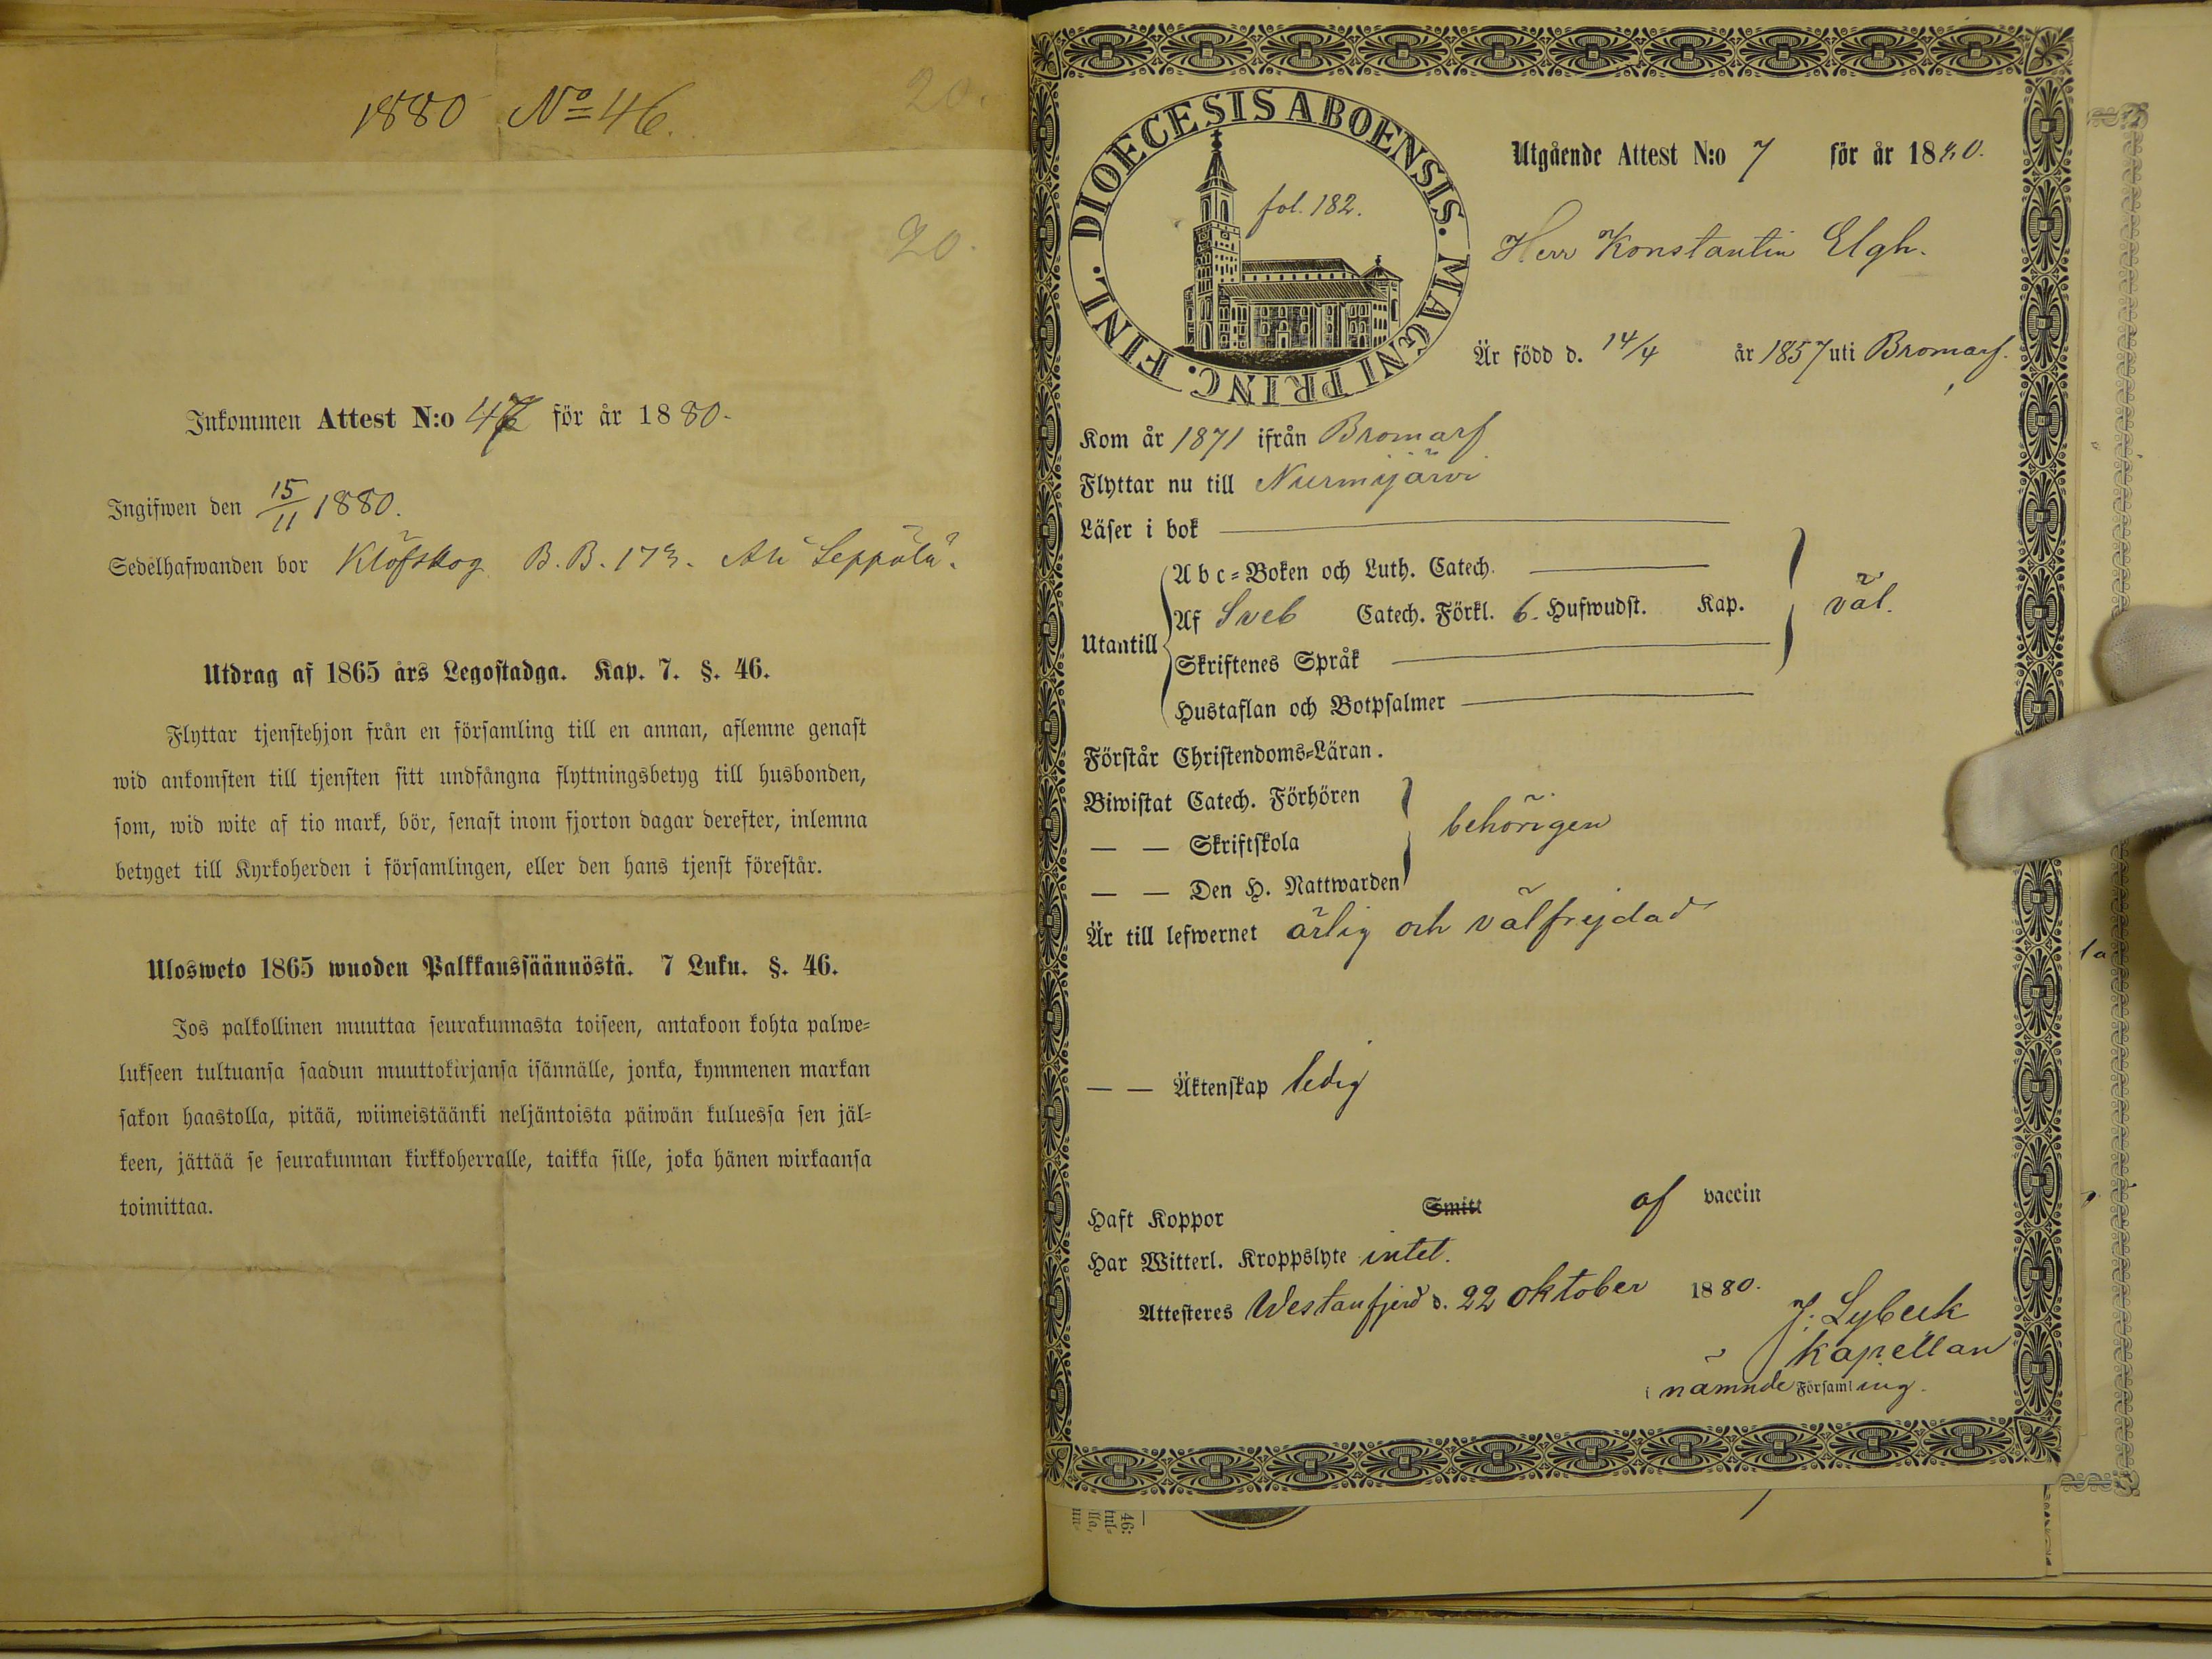 1880 No 46.
20.
20.
Inkommen Attest N:o 47 för år 1880.
Ingifwen den 15/11 1880.
Sedelhafwanden bor Klöfskog B.B. 173. Ali Seppälä.
Utdrag af 1865 års Legostadga. Kap. 7. §. 46.
Flyttar tjenstehjon från en församling till en annan, aflemne genast
wid ankomsten till tjensten sitt undfångna flyttningsbetyg till husbonden,
som, wid wite af tio mark, bör, senast inom fjorton dagar derefter, inlemna
betyget till Kyrkoherden i församlingen, eller den hans tjenst förestår.
Ulosweto 1865 wuoden Palkkaussäännöstä. 7 Luku. §. 46.
Jos palkollinen muuttaa seurakunnasta toiseen, antakoon kohta palwe-
lukseen tultuansa saadun muuttokirjansa isännälle, jonka, kymmenen markan
sakon haastolla, pitää, wiimeistäänki neljäntoista päiwän kuluessa sen jäl-
keen, jättää se seurakunnan kirkkoherralle, taikka sille, joka hänen wirkaansa
toimittaa.
DIOECESIS ABOENSIS. MAGNI PRINC. FINL.
fol. 182.
Utgående Attest N:o 7 för år 1880.
Herr Konstantin Elgh.
Är född d. 14/4 år 1857 uti Bromarf.
Kom år 1871 ifrån Bromarf
Flyttar nu till Nurmijärvi
Läser i bok
Utantill
Abc-Boken och Luth. Catech.
Af Sveb Catech. Förkl. 6. Hufwudst. Kap. väl.
Skriftenes Språk
Hustaflan och Botpsalmer
Förstår Christendoms-Läran.
Biwistat Catech. Förhören
— — Skriftskola behörigen
— — Den H. Nattwarden
Är till lefwernet ärlig och välfrejdad
— — Äktenskap ledig
Haft Koppor Smitt af vaccin
Har Witterl. Kroppslyte intet.
Attesteres Westanfjerd d. 22 Oktober 1880.
J. Lybeck
Kapellan
i nämnde Församling.